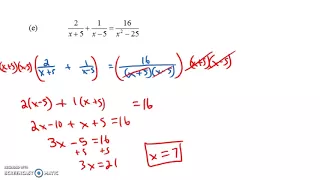 (e) 2/(x+5) + 1/(x-5) = 16/(x²-25)
(x+5)(x-5)(2/(x+5) + 1/(x-5)) = (16/((x+5)(x-5))) (x+5)(x-5)
2(x-5) + 1(x+5) = 16
2x-10 + x+5 = 16
3x - 5 = 16
+5 +5
3x = 21
x = 7
RECORDED WITH
SCREENCAST-O-MATIC